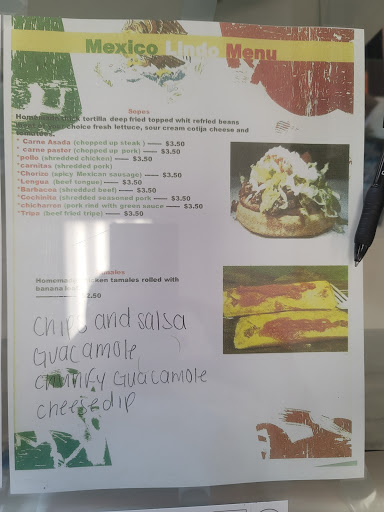 Mexico Lindo Menu
Sopes
Homemade thick tortilla deep fried topped whit refried beans
choice fresh lettuce, sour cream cotija cheese and
* Carne Asada (chopped up steak ) —— $3.50
* carne pastor (chopped up pork) —— $3.50
*pollo (shredded chicken) —— $3.50
*carnitas (shredded pork)
*Chorizo (spicy Mexican sausage) —— $3.50
*Lengua (beef tongue) —— $3.50
*Barbacoa (shredded beef) —— $3.50
*Cochinita (shredded seasoned pork —— $3.50
*chicharron (pork rind with green sauce —— $3.50
*Tripa (beef fried tripe) —— $3.50
Tamales
Homemade chicken tamales rolled with
banana leaf
—— $2.50
chips and salsa
Guacamole
chunky Guacamole
cheese dip